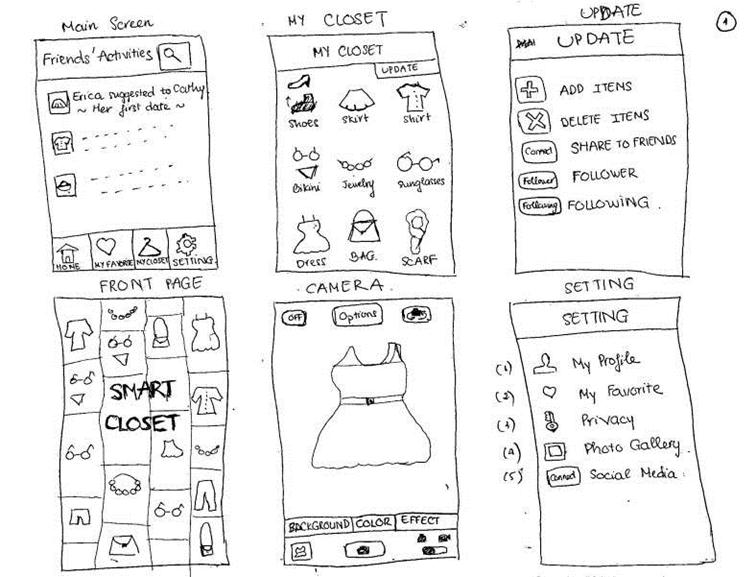 Main Screen
Friends' Activities
Erica suggested to Cathy
~ Her first date ~
HOME
MY FAVORITE
MY CLOSET
SETTING
MY CLOSET
MY CLOSET
UPDATE
Shoes
Skirt
Shirt
Bikini
Jewelry
Sunglasses
Dress
BAG.
SCARF
UPDATE
1
UPDATE
ADD ITEMS
DELETE ITEMS
Connect
SHARE TO FRIENDS
Follower
FOLLOWER
Following
FOLLOWING.
FRONT PAGE
SMART
CLOSET
CAMERA.
OFF
Options
BACKGROUND
COLOR
EFFECT
SETTING
SETTING
(1) My Profile
(2) My Favorite
(3) Privacy
(4) Photo Gallery.
(5) Connect Social Media.